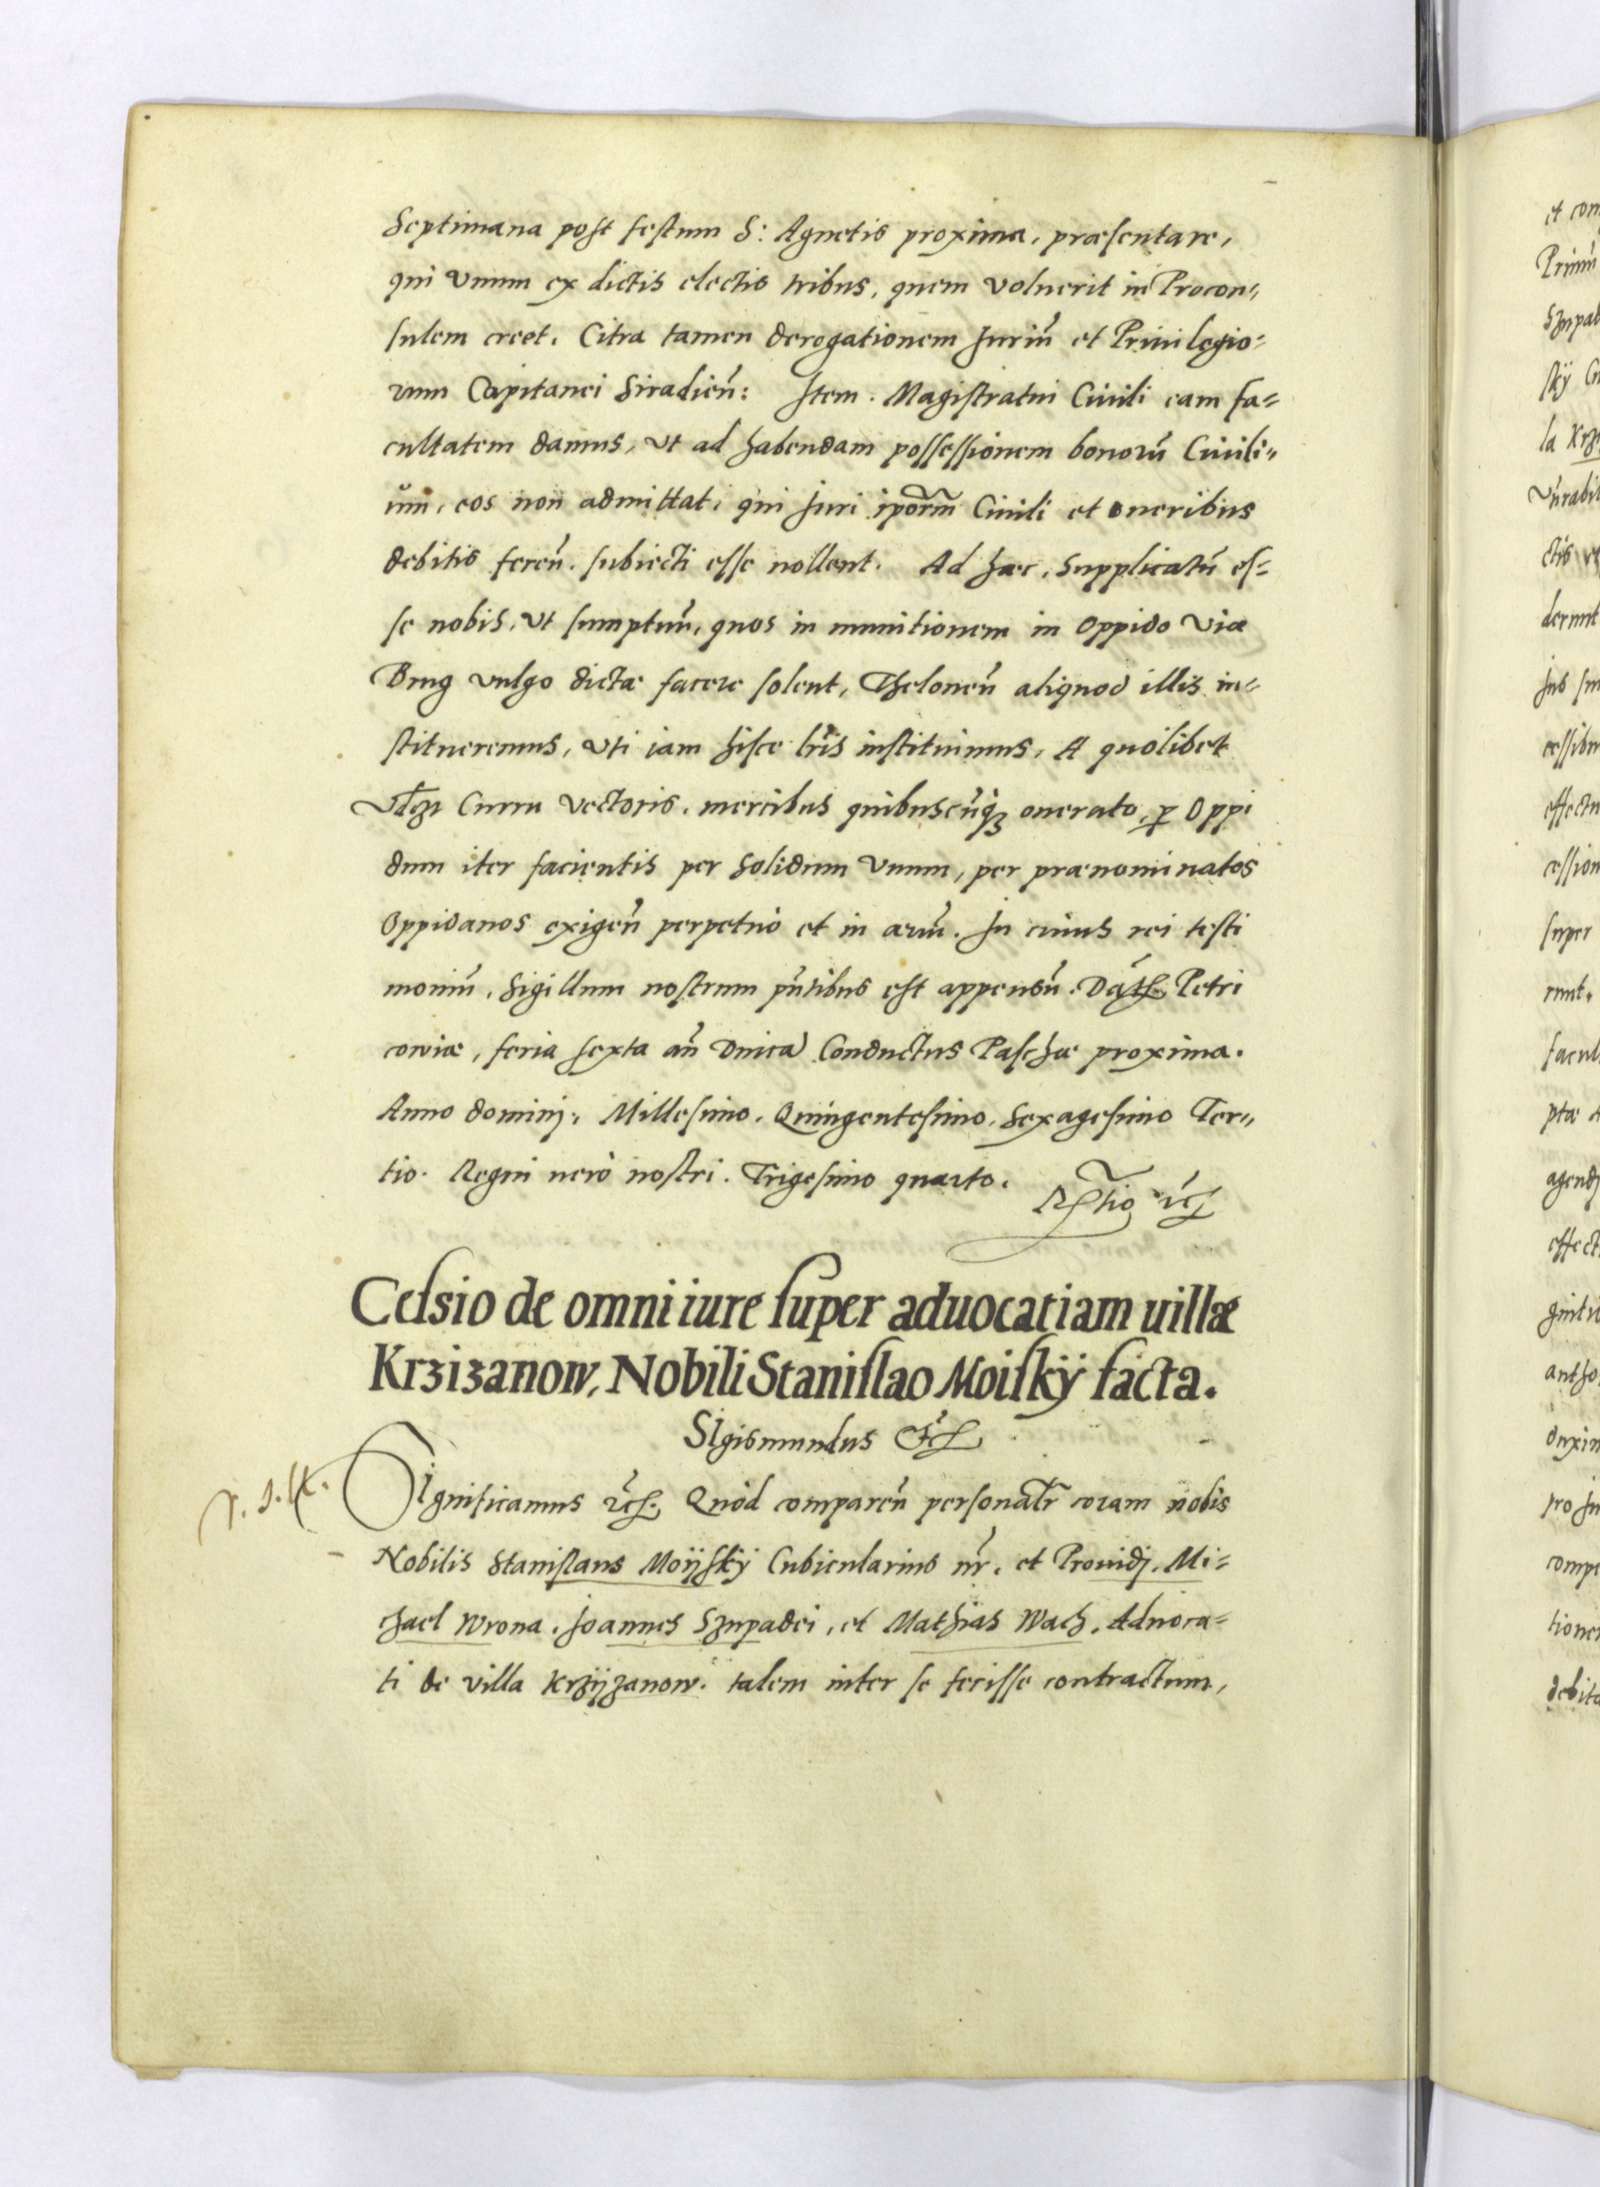 Septimana post festum S: Agnetis proxima, præsentare,
qui vnum ex dictis electis tribus, quem voluerit in Procon„
sulem creet. Citra tamen derogationem Juriū et Priuilegio-
rum Capitanei Siradieñ: Item. Magistratui Ciuili eam fa-
cultatem damus, vt ad habendam possessionem bonorū Ciuili„
um, eos non admittat, qui Juri ipõrm̃ Ciuili et oneribus
debitis fereñ. subiecti esse nollent. Ad hæc, Supplicatū es-
se nobis, vt sumptuū, quos in munitionem in Oppido viæ
Brug vulgo dictæ facere solent, Theloneū aliquod illis in-
stitueremus, vti iam hisce lrīs instituimus, A quolibet
vt̃qȝ Curru vectoris, mercibus quibuscūqȝ onerato, ꝑ Oppi
dum iter facientis per Solidum vnum, per prænominatos
Oppidanos exigeñ perpetuò et in æuū. In cuius rei testi
moniū, Sigillum nostrum pñtibus est appensū. Dat̃ Petri
couiæ, feria sexta añ Dnica Conductus Paschæ proxima.
Anno dominj, Millesimo. Quingentesimo, Sexagesimo Ter„
tio. Regni uerò nostri. Trigesimo quarto.
Cessio de omni iure super aduocatiam uillæ
Krziżanow, Nobili Stanislao Moiskÿ facta.
SIgismundus &c̃
SIgnificamus &c̃. Quòd compareñ personalr̃ coram nobis
Nobilis Stanislaus Moijskÿ Cubicularius nr̃. et Prouidj. Mi-
chael Wrona, Joannes Szupadei, et Mathias Wach, Aduoca-
ti de villa Krzijżanow. talem inter se fecisse contractum,